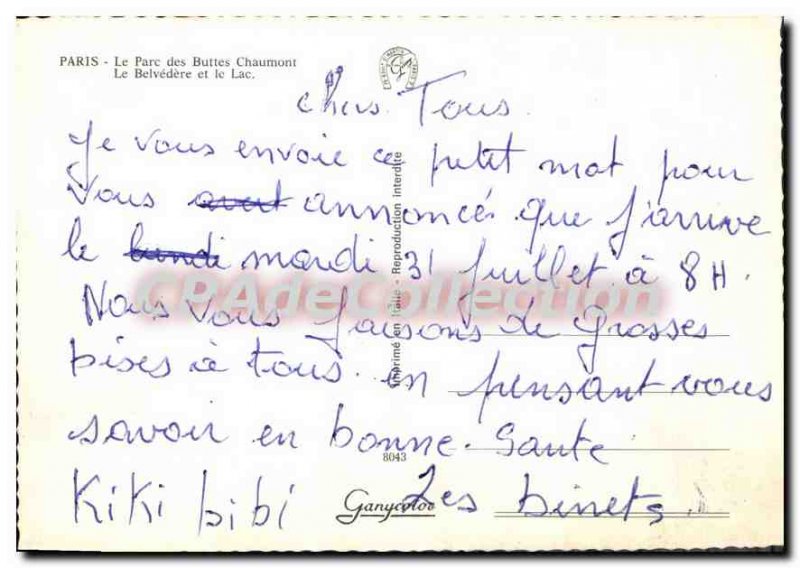 PARIS - Le Parc des Buttes Chaumont
Le Belvédère et le Lac.
Chers Tous
Je vous envoie ce petit mot pour
vous avant annoncé que j'arrive
le lundi mardi 31 juillet à 8 H.
Nous vous faisons de grosses
bises à tous. en pensant vous
savoir en bonne. Santé
Kiki bibi Les binets.
Imprimé en Italie - Reproduction Interdite
8043
Ganycolor
CPAdeCollection